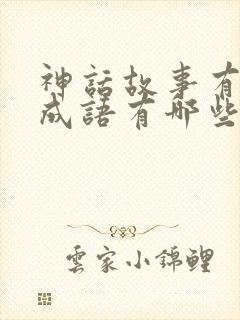 神話故事有
成語有哪些
雲家小錦鯉